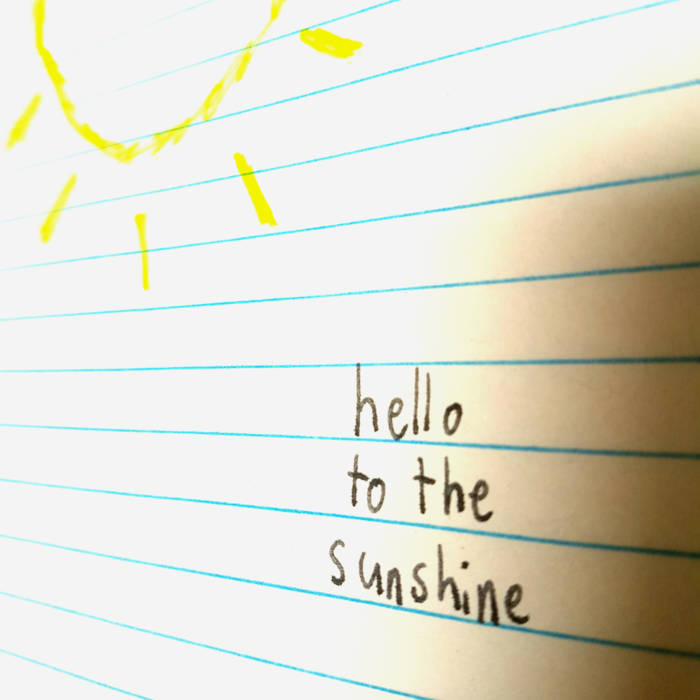 hello
to the
sunshine